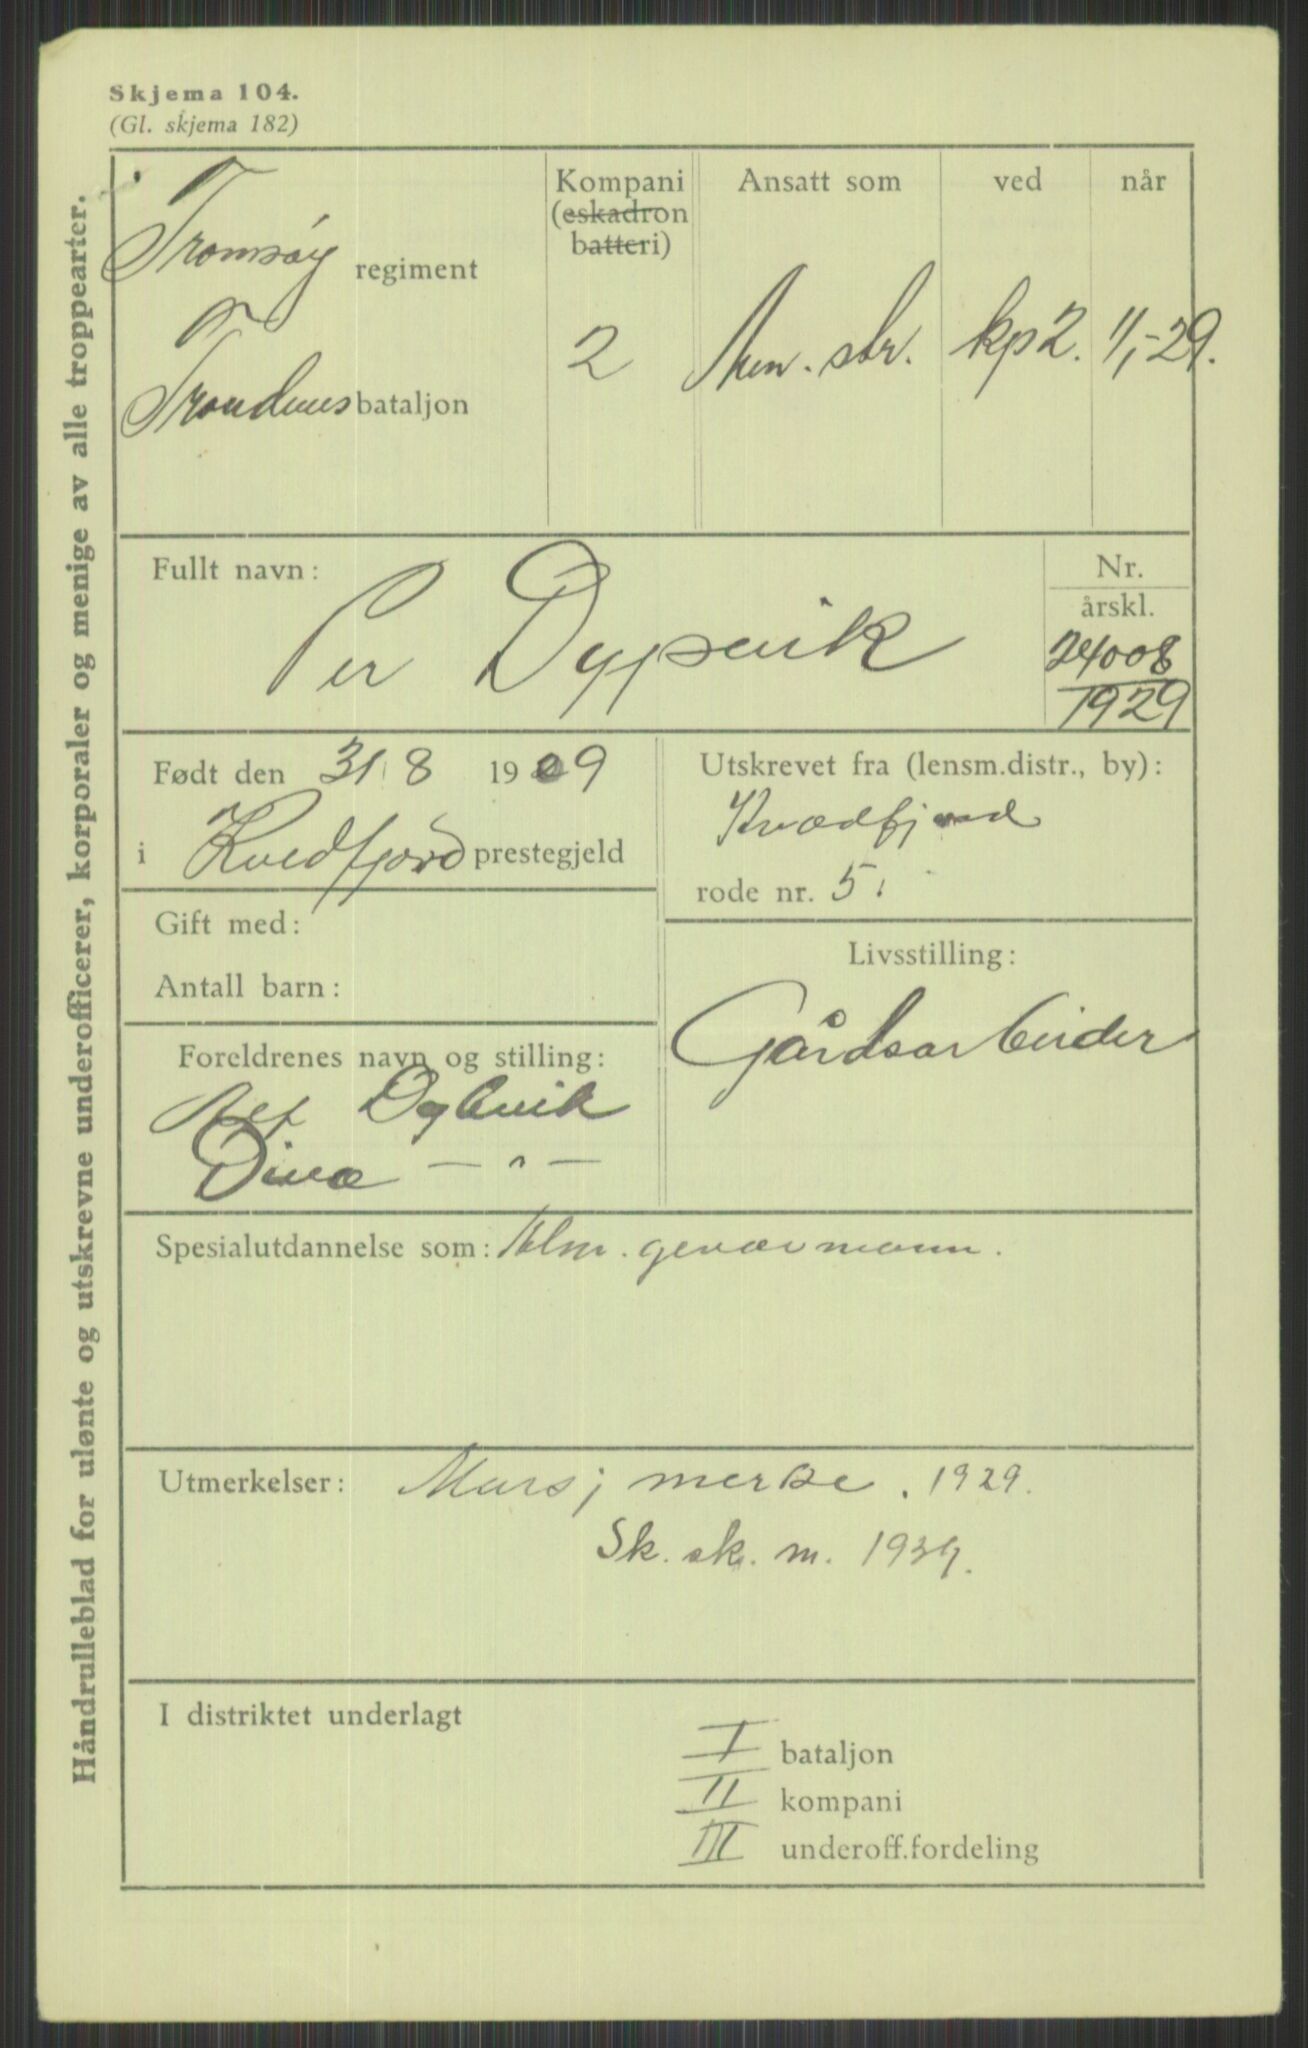 Skjema 104.
(Gl. skjema 182)
Håndrulleblad for ulønte og utskrevne underofficerer, korporaler og menige av alle troppearter.
Tromsøy regiment
Trondenes bataljon
Kompani
(eskadron
batteri)
2
Ansatt som
Men. str.
ved
kp 2.
når
1/1-29.
Fullt navn:
Per Dypsvik
Nr.
årskl.
24008
1929
Født den 31 8 1909
i Kvedfjord prestegjeld
Utskrevet fra (lensm.distr., by):
Kvædfjord
rode nr. 5.
Gift med:
Antall barn:
Livsstilling:
Gårdsarbeider
Foreldrenes navn og stilling:
Alf Dybvik
Dina — " —
Spesialutdannelse som: Alm. geværmann.
Utmerkelser: Marsjmerke. 1929.
Sk. sk. m. 1939.
I distriktet underlagt
I bataljon
II kompani
III underoff.fordeling